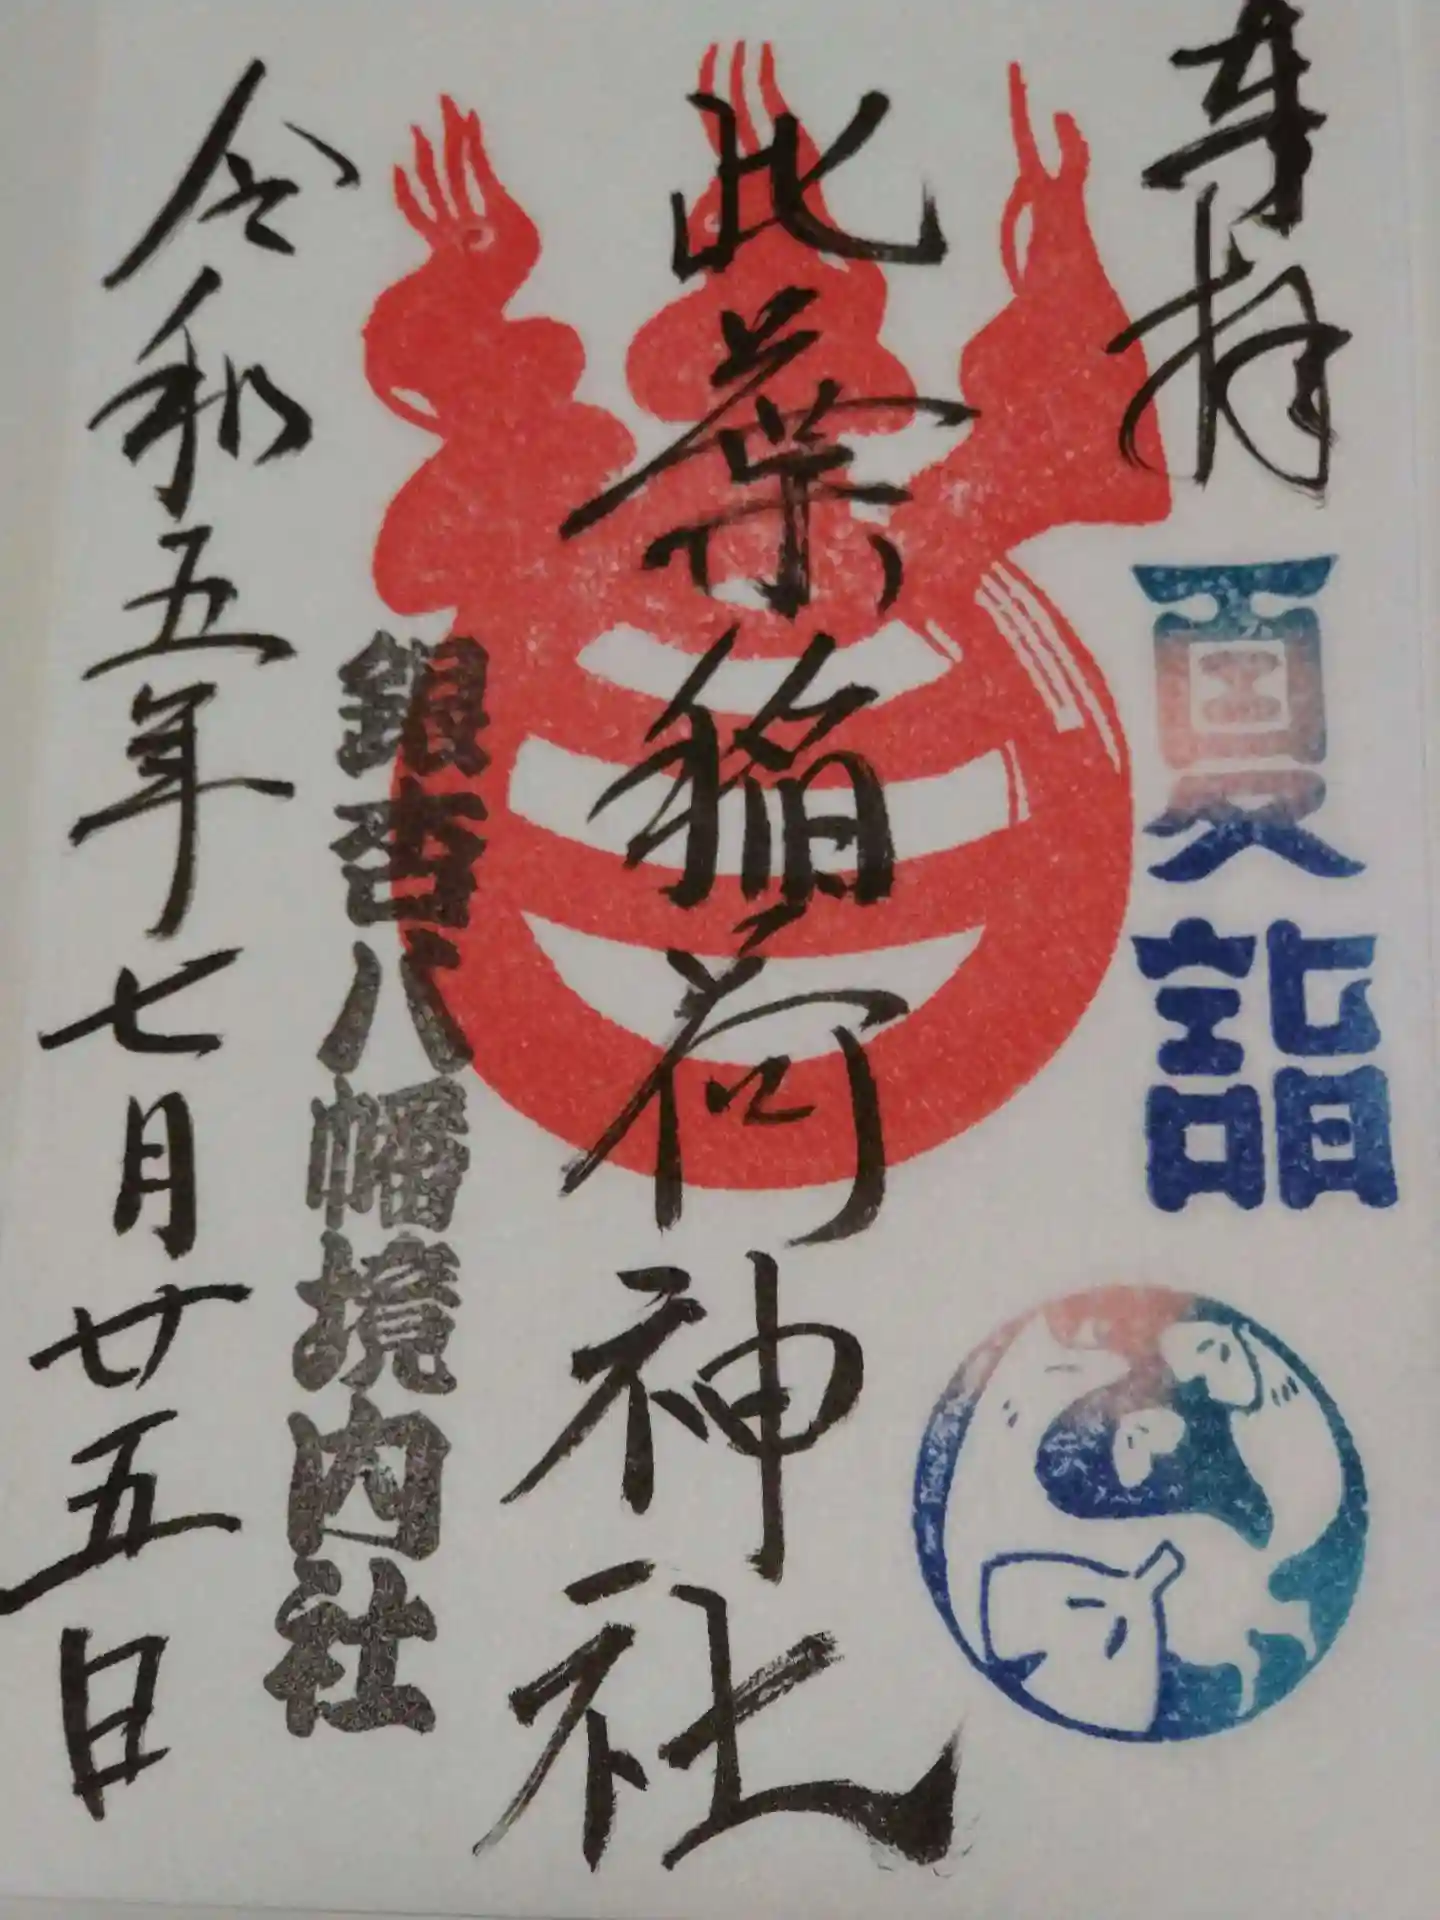 奉拝
夏詣
此葉稲荷神社
銀杏八幡境内社
令和五年七月廿五日